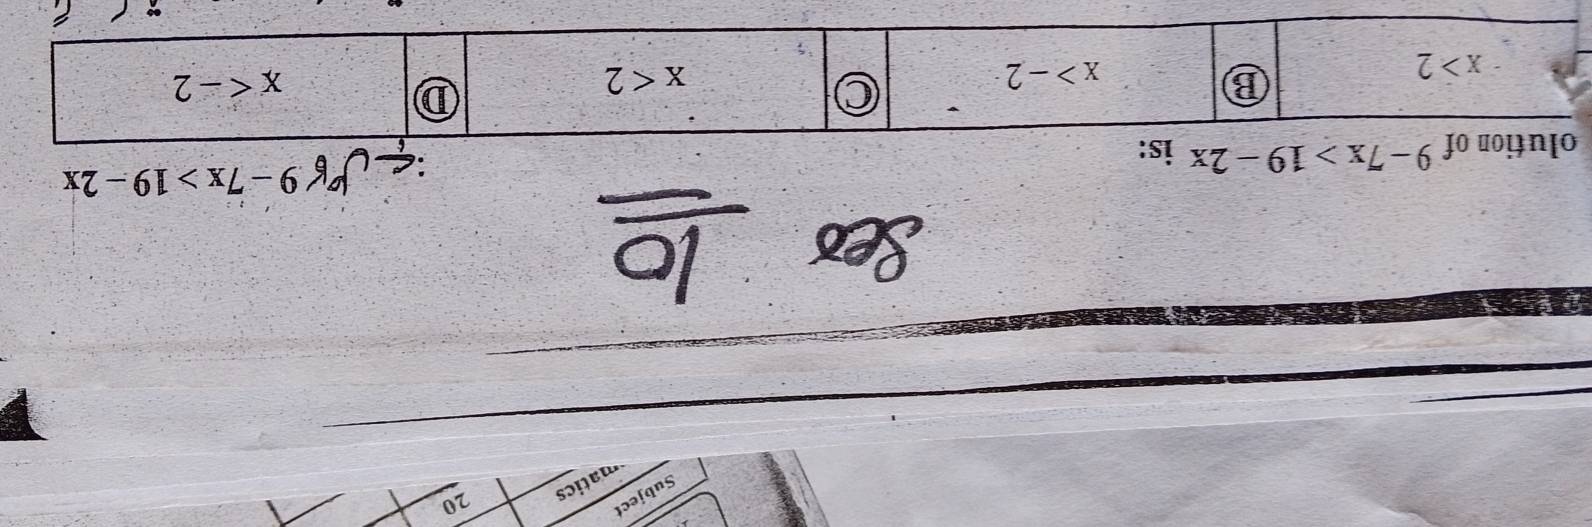 Subject
matics 20
10
olution of 9 − 7x > 19 − 2x is:
9 − 7x > 19 − 2x کا حل ہے:
x > 2 Ⓑ x > −2 Ⓒ x < 2 Ⓓ x < −2